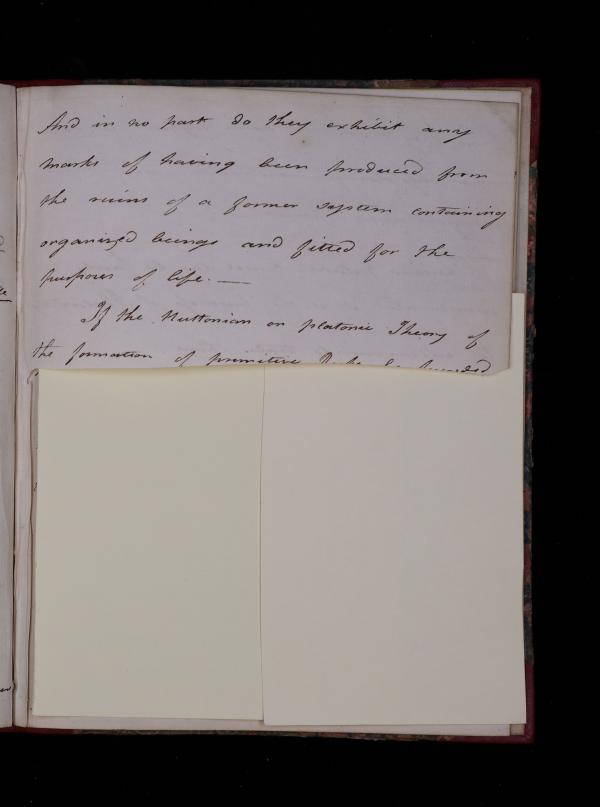 And in no part do they exhibit any
marks of having been produced from
the ruins of a former system containing
organized beings and fitted for the
purposes of life. —
If the Huttonian or platonic Theory of
the formation of primitive Rocks be founded